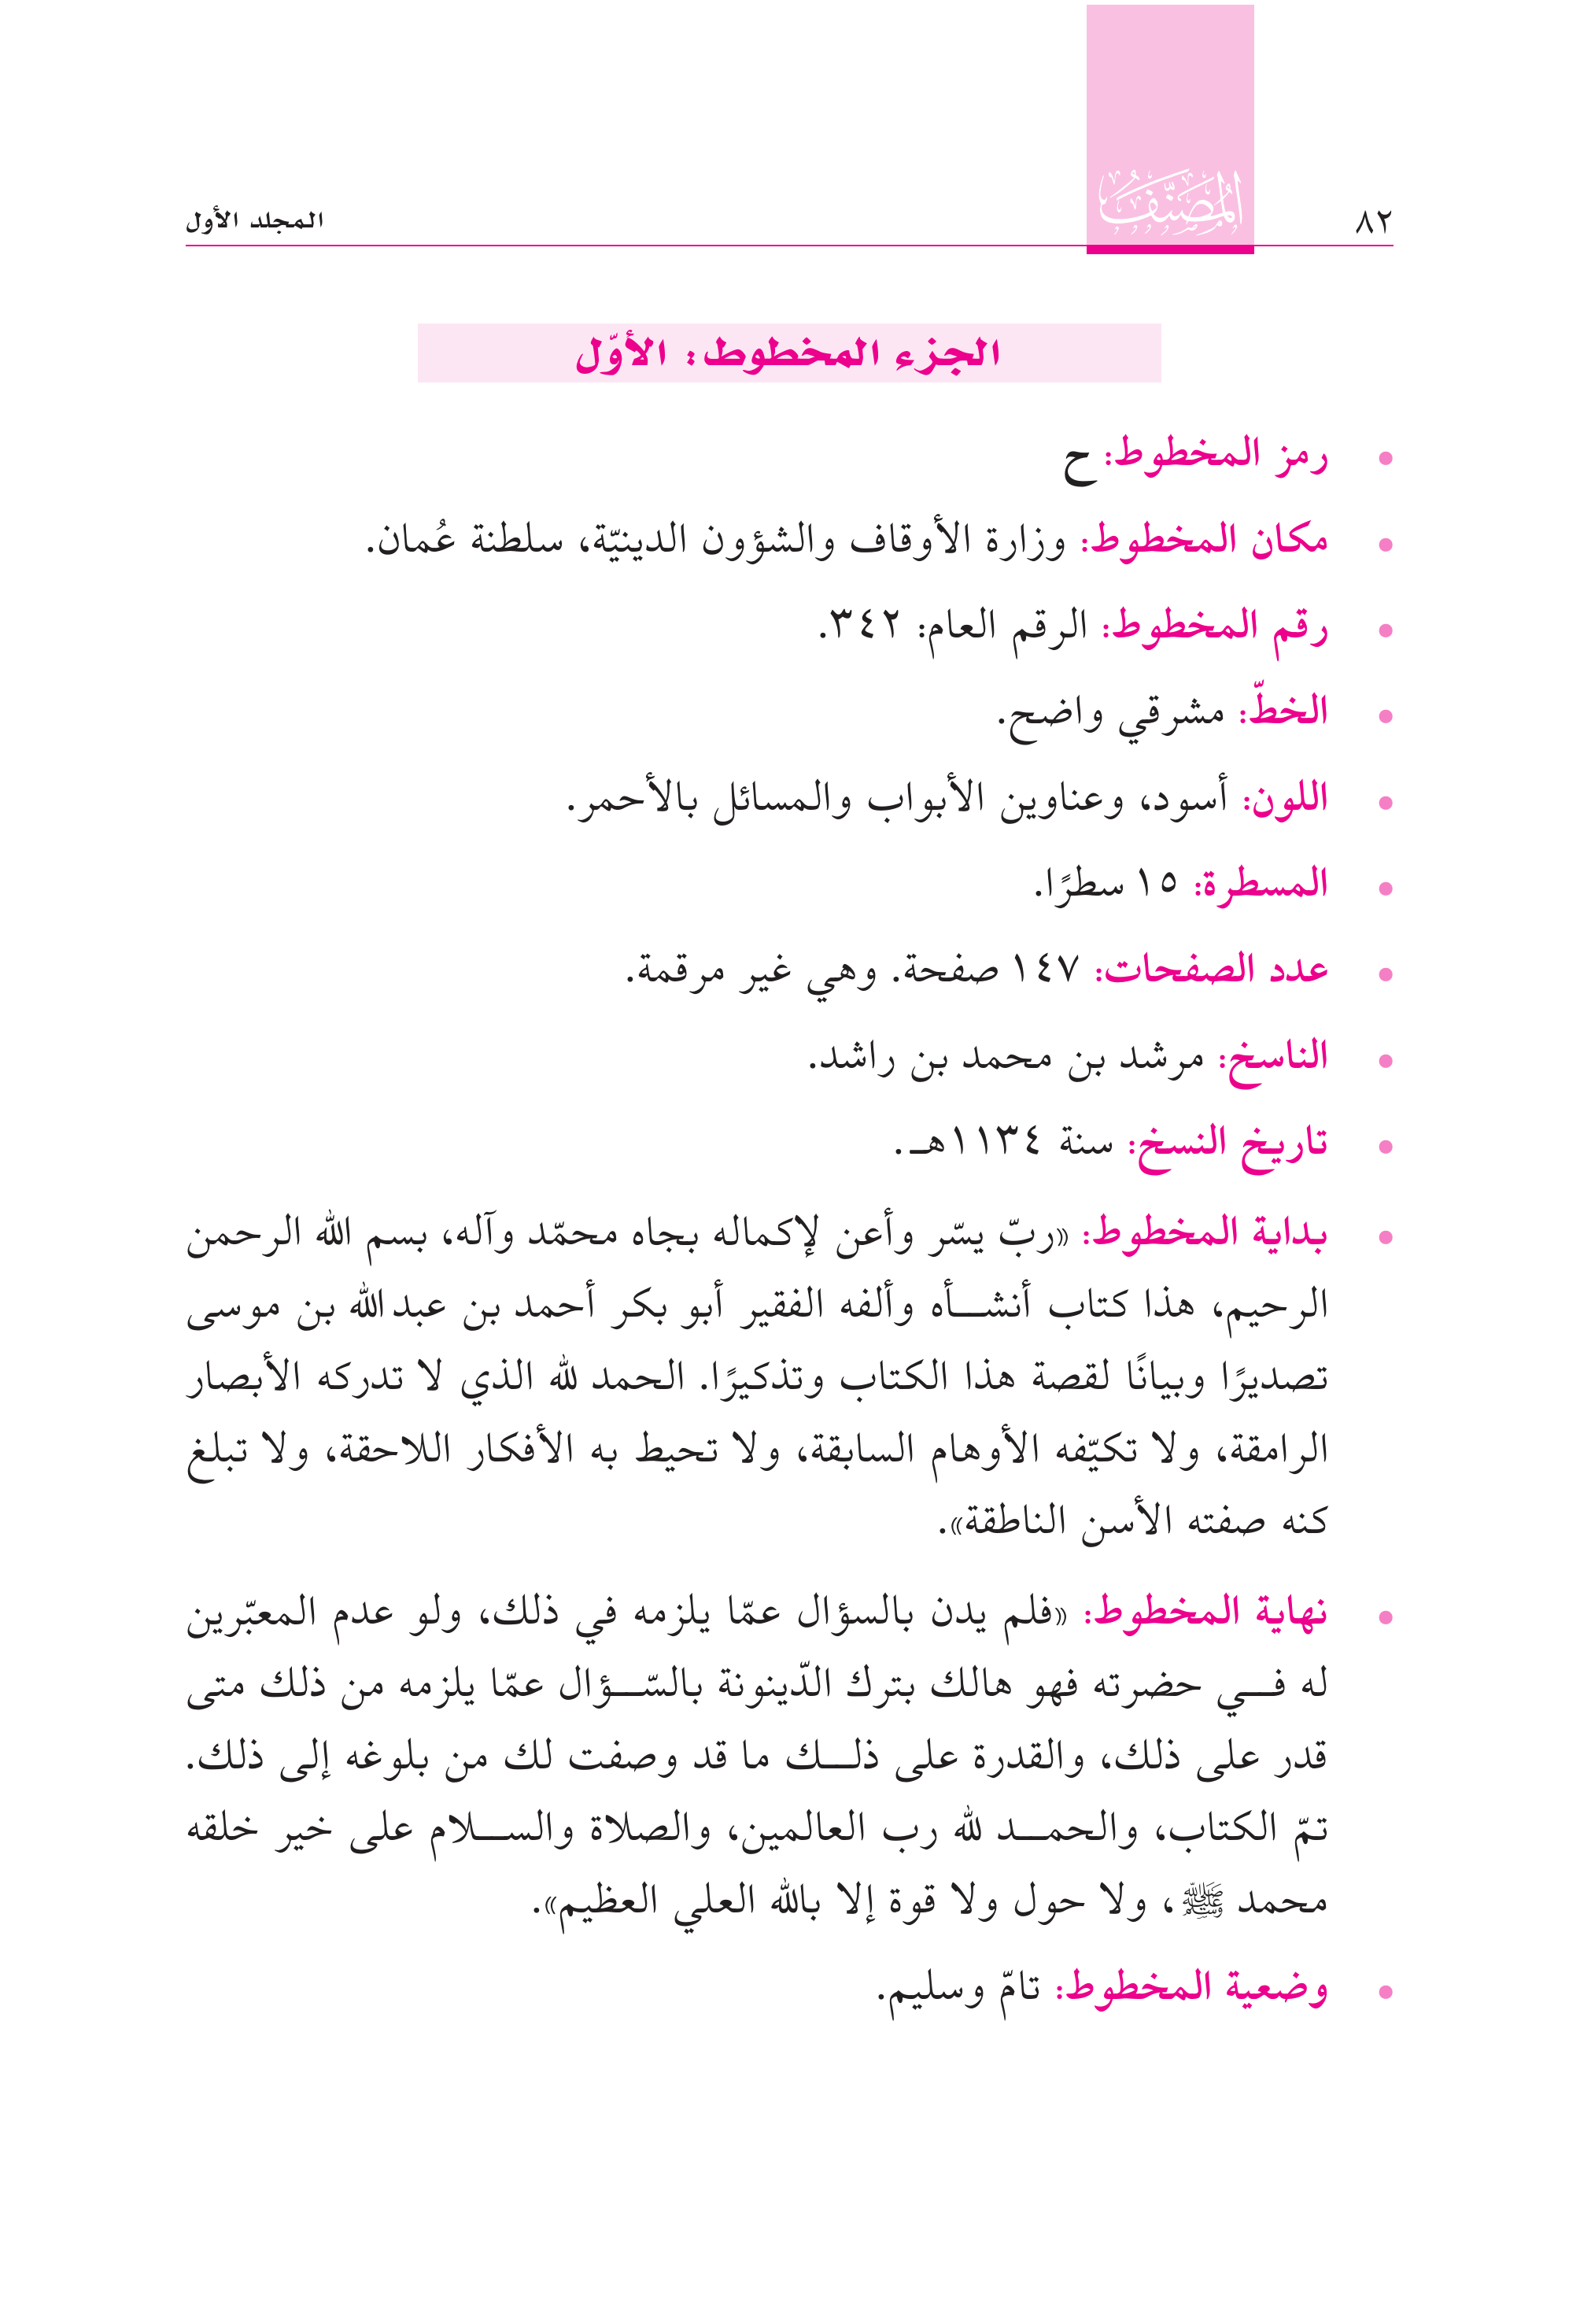 ٨٢
المُصَنَّفُ
المجلد الأول
الجزء المخطوط: الأوّل
• رمز المخطوط: ح
• مكان المخطوط: وزارة الأوقاف والشؤون الدينيّة، سلطنة عُمان.
• رقم المخطوط: الرقم العام: ٣٤٢.
• الخطّ: مشرقي واضح.
• اللون: أسود، وعناوين الأبواب والمسائل بالأحمر.
• المسطرة: ١٥ سطرًا.
• عدد الصفحات: ١٤٧ صفحة. وهي غير مرقمة.
• الناسخ: مرشد بن محمد بن راشد.
• تاريخ النسخ: سنة ١١٣٤هـ.
• بداية المخطوط: «ربّ يسّر وأعن لإكماله بجاه محمّد وآله، بسم الله الرحمن
الرحيم، هذا كتاب أنشـأه وألفه الفقير أبو بكر أحمد بن عبدالله بن موسى
تصديرًا وبيانًا لقصة هذا الكتاب وتذكيرًا. الحمد لله الذي لا تدركه الأبصار
الرامقة، ولا تكيّفه الأوهام السابقة، ولا تحيط به الأفكار اللاحقة، ولا تبلغ
كنه صفته الأسن الناطقة».
• نهاية المخطوط: «فلم يدن بالسؤال عمّا يلزمه في ذلك، ولو عدم المعبّرين
له فـي حضرته فهو هالك بترك الدّينونة بالسّـؤال عمّا يلزمه من ذلك متى
قدر على ذلك، والقدرة على ذلـك ما قد وصفت لك من بلوغه إلى ذلك.
تمّ الكتاب، والحمـد لله رب العالمين، والصلاة والسـلام على خير خلقه
محمد ﷺ، ولا حول ولا قوة إلا بالله العلي العظيم».
• وضعية المخطوط: تامّ وسليم.